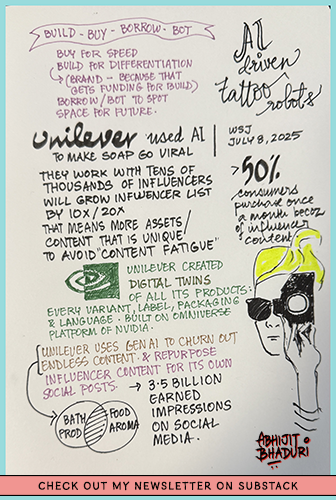 BUILD - BUY - BORROW - BOT
BUY FOR SPEED
BUILD FOR DIFFERENTIATION
(BRAND - BECAUSE THAT
GETS FUNDING FOR BUILD)
BORROW/BOT TO SPOT
SPACE FOR FUTURE.
AI
driven
tattoo
robots
unilever used AI
TO MAKE SOAP GO VIRAL
WSJ
JULY 8, 2025
THEY WORK WITH TENS OF
THOUSANDS OF INFLUENCERS
WILL GROW INFLUENCER LIST
BY 10X/20X
THAT MEANS MORE ASSETS/
CONTENT THAT IS UNIQUE/
TO AVOID "CONTENT FATIGUE"
>50%
consumers
purchase once
a month becoz
of influencer
content
UNILEVER CREATED
DIGITAL TWINS
OF ALL ITS PRODUCTS:
EVERY VARIANT, LABEL, PACKAGING
& LANGUAGE. BUILT ON OMNIVERSE
PLATFORM OF NVIDIA.
UNILEVER USES GEN AI TO CHURN OUT
ENDLESS CONTENT. & REPURPOSE
INFLUENCER CONTENT FOR ITS OWN
SOCIAL POSTS.
→ 3.5 BILLION
EARNED
IMPRESSIONS
ON SOCIAL
MEDIA.
BATH
PROD
FOOD
AROMA
ABHIJIT
BHADURI
CHECK OUT MY NEWSLETTER ON SUBSTACK